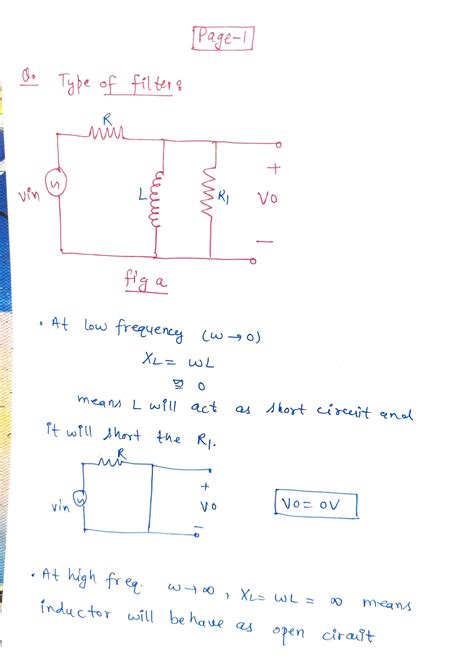 Page-1
Q. Type of filters
R
Vin
L
R1
+
Vo
-
fig a
• At low frequency (ω→0)
XL = ωL
≅ 0
means L will act as short circuit and
it will short the R1.
R
Vin
+
Vo
-
Vo = 0V
• At high freq. ω→∞, XL = ωL = ∞ means
inductor will behave as open circuit